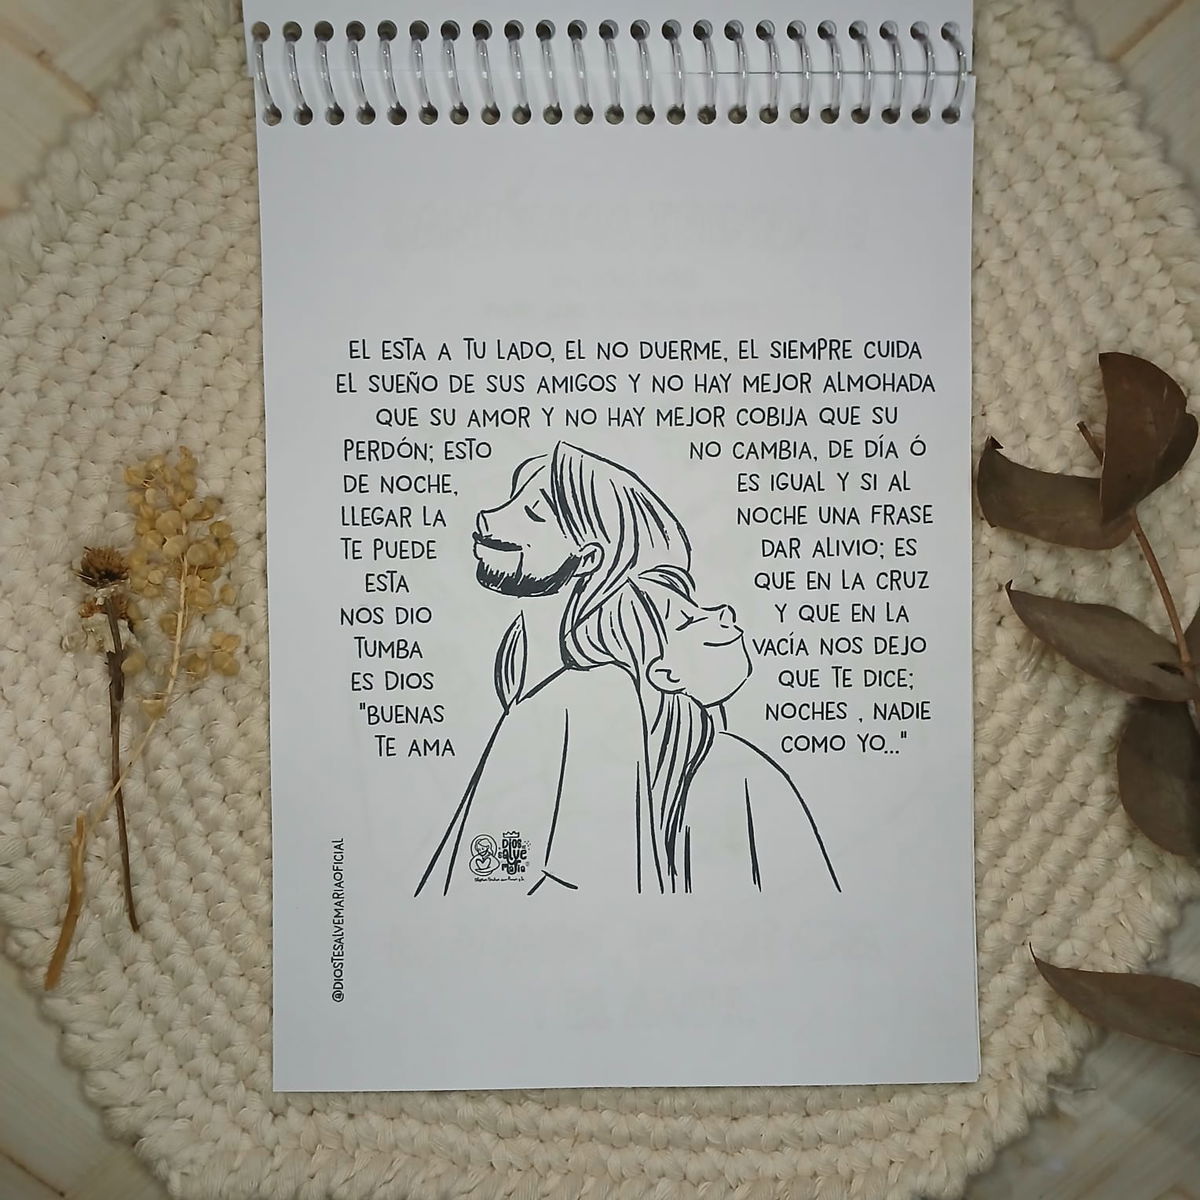 EL ESTA A TU LADO, EL NO DUERME, EL SIEMPRE CUIDA
EL SUEÑO DE SUS AMIGOS Y NO HAY MEJOR ALMOHADA
QUE SU AMOR Y NO HAY MEJOR COBIJA QUE SU
PERDÓN; ESTO NO CAMBIA, DE DÍA Ó
DE NOCHE, ES IGUAL Y SI AL
LLEGAR LA NOCHE UNA FRASE
TE PUEDE DAR ALIVIO; ES
ESTA QUE EN LA CRUZ
NOS DIO Y QUE EN LA
TUMBA VACÍA NOS DEJO
ES DIOS QUE TE DICE;
"BUENAS NOCHES , NADIE
TE AMA COMO YO..."
@DIOSTESALVEMARIAOFICIAL